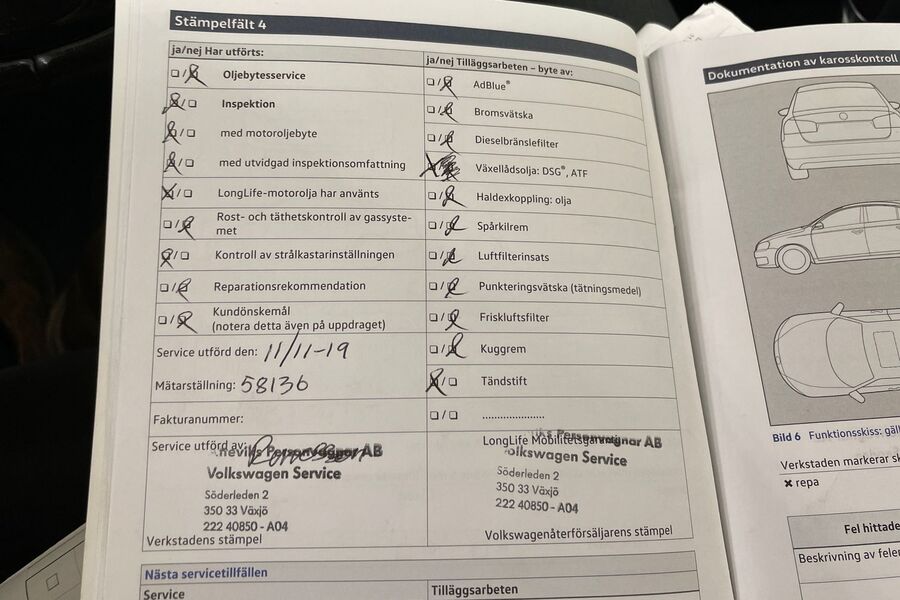 Stämpelfält 4
ja/nej Har utförts:
Oljebytesservice
Inspektion
med motoroljebyte
med utvidgad inspektionsomfattning
LongLife-motorolja har använts
Rost- och täthetskontroll av gassyste-
met
Kontroll av strålkastarinställningen
Reparationsrekommendation
Kundönskemål
(notera detta även på uppdraget)
Service utförd den: 11/11-19
Mätarställning: 58136
Fakturanummer:
Service utförd av:
Personvagnar AB
Volkswagen Service
Söderleden 2
350 33 Växjö
222 40850 - A04
Verkstadens stämpel
ja/nej Tilläggsarbeten – byte av:
AdBlue®
Bromsvätska
Dieselbränslefilter
Växellådsolja: DSG®, ATF
Haldexkoppling: olja
Spårkilrem
Luftfilterinsats
Punkteringsvätska (tätningsmedel)
Friskluftsfilter
Kuggrem
Tändstift
.....................
LongLife Mobilitetsgaranti
Personvagnar AB
Volkswagen Service
Söderleden 2
350 33 Växjö
222 40850 - A04
Volkswagenåterförsäljarens stämpel
Nästa servicetillfällen
Service
Tilläggsarbeten
Dokumentation av karosskontroll
Bild 6 Funktionsskiss: gäll
Verkstaden markerar
× repa
Fel hittade
Beskrivning av felen